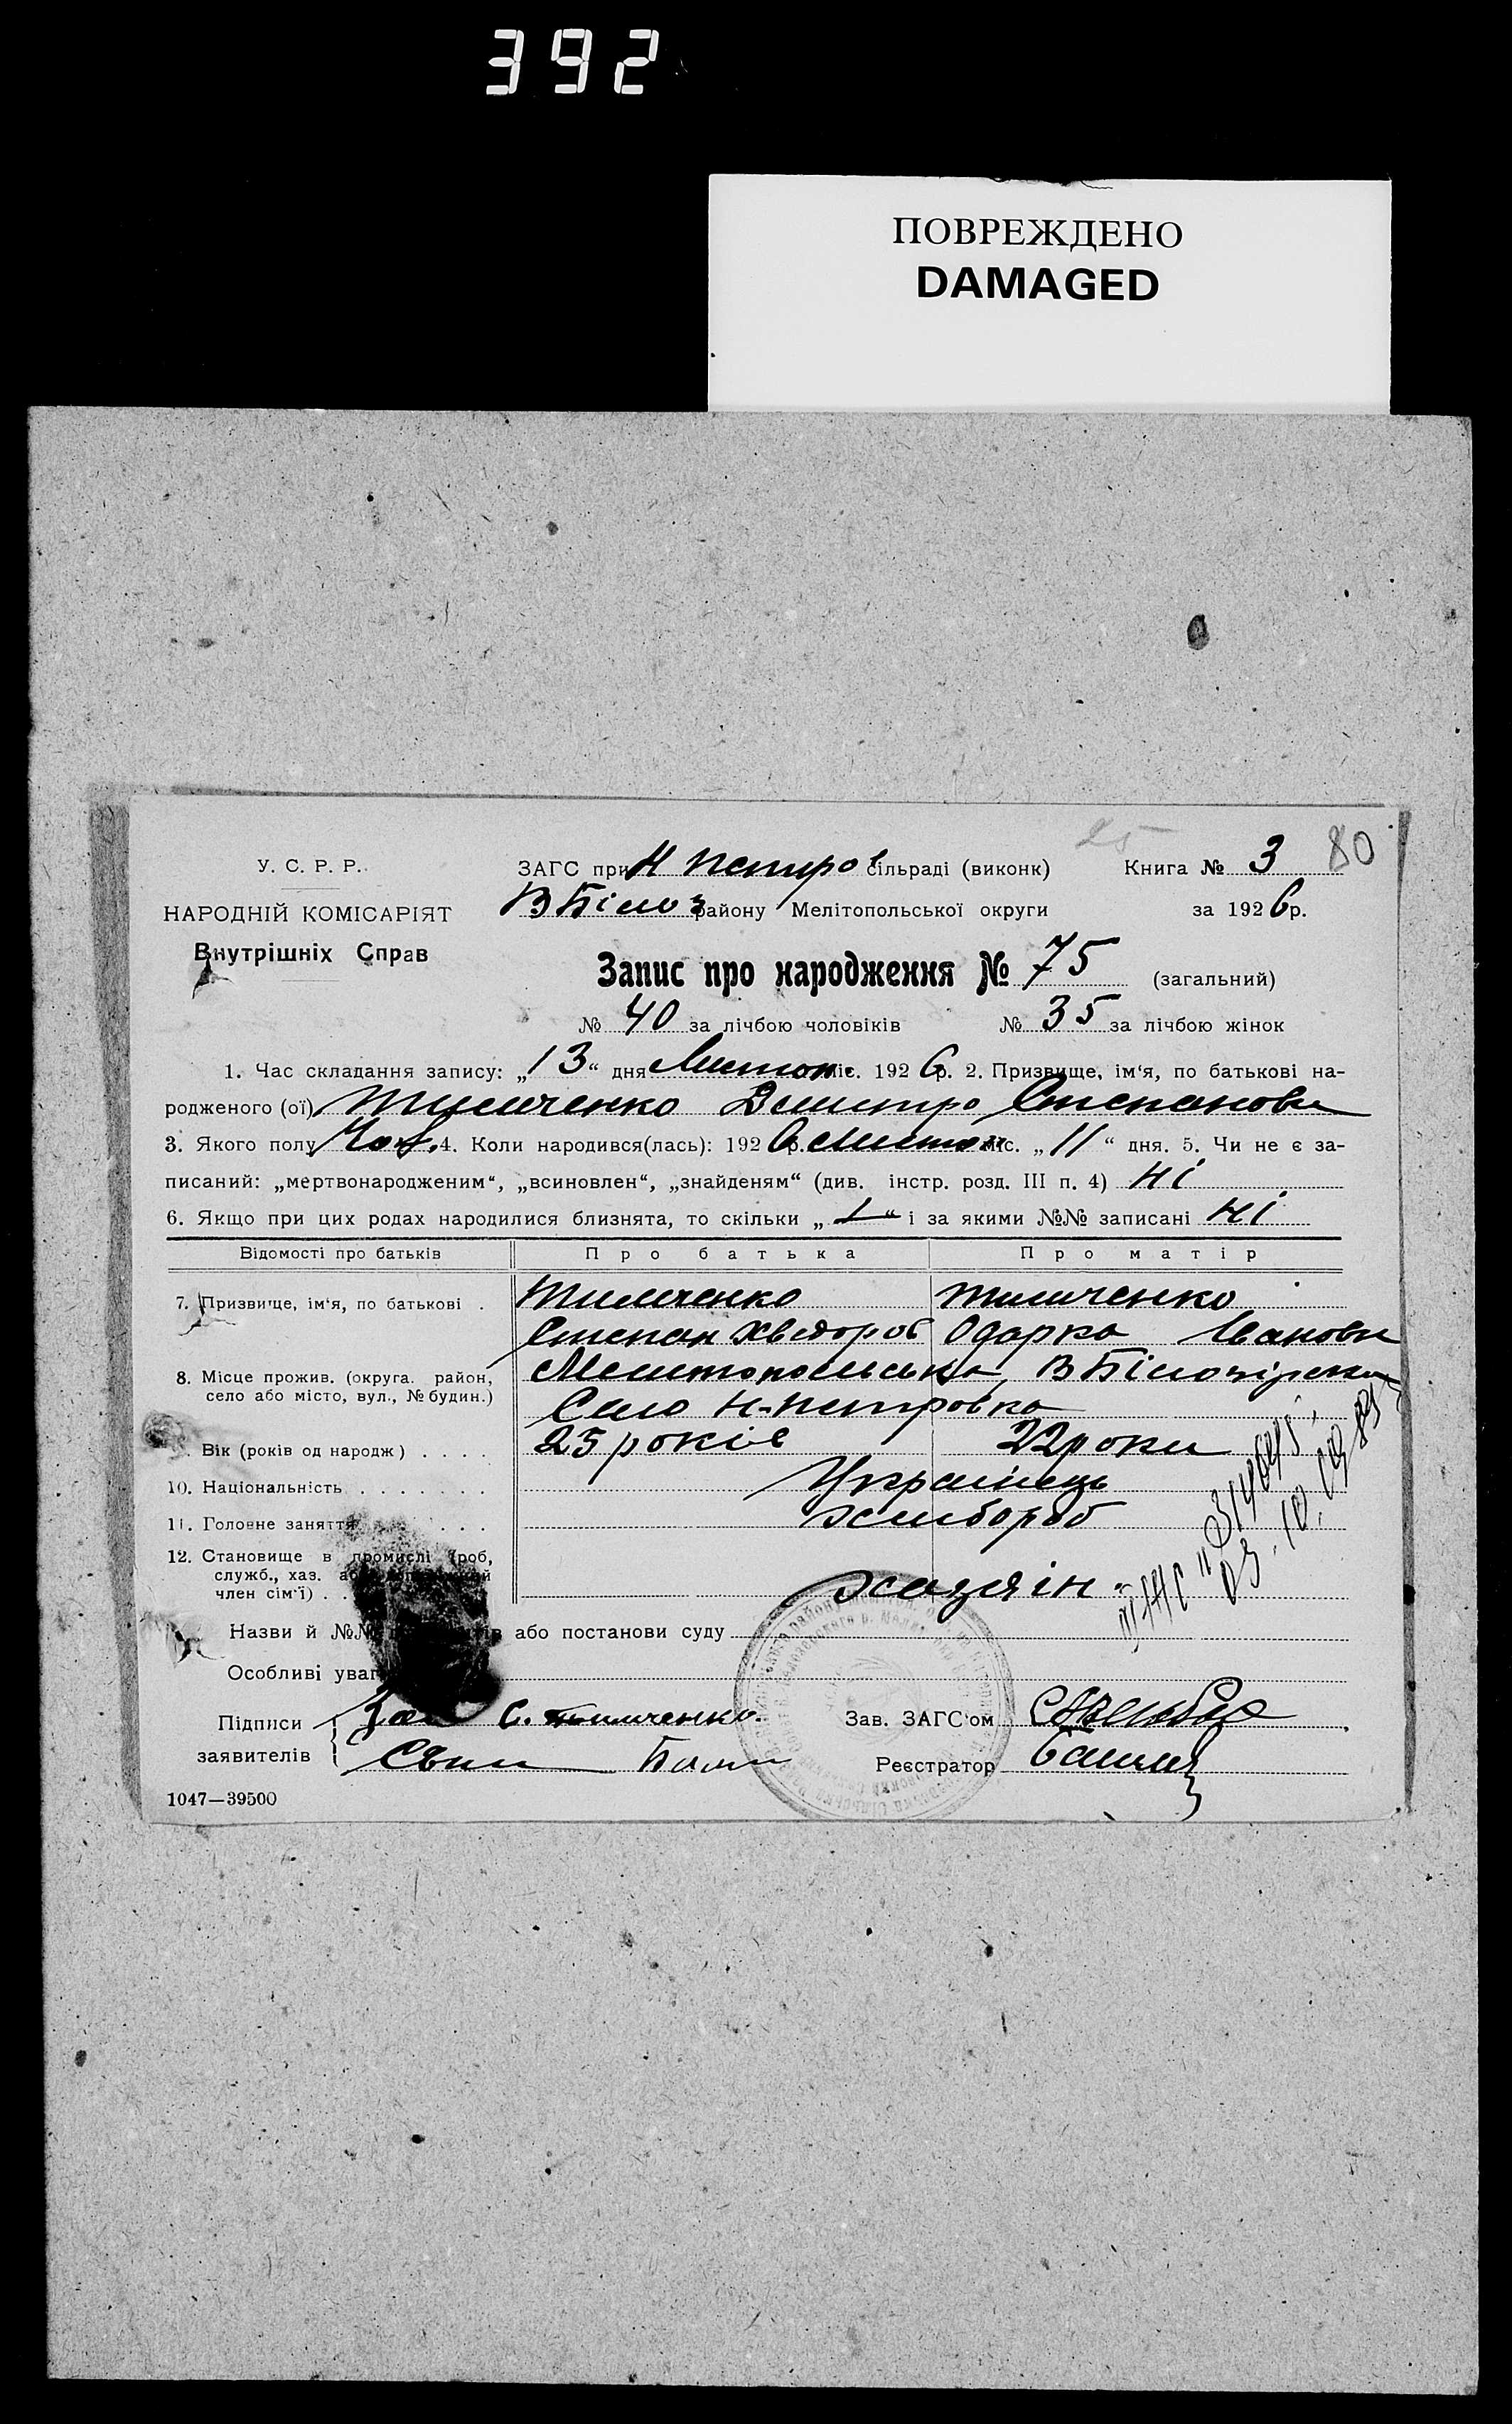 392
ПОВРЕЖДЕНО
DAMAGED
25
80
У. С. Р. Р.
НАРОДНІЙ КОМІСАРІЯТ
Внутрішніх Справ
ЗАГС при Н Петров сільраді (виконк) Книга № 3
В Білоз району Мелітопольської округи за 1926 р.
Запис про народження № 75 (загальний)
№ 40 за лічбою чоловіків № 35 за лічбою жінок
1. Час складання запису: „13“ дня Листоп. міс. 1926 р. 2. Призвище, ім‘я, по батькові на-
родженого (ої) Тимченко Дмитро Степанови
3. Якого полу Чол. 4. Коли народився(лась): 1926 р. Листоп міс. „11“ дня. 5. Чи не є за-
писаний: „мертвонародженим“, „всиновлен“, „знайденям“ (див. інстр. розд. III п. 4) Ні
6. Якщо при цих родах народилися близнята, то скільки „1“ і за якими №№ записані Ні
Відомості про батьків Про батька Про матір
7. Призвище, ім‘я, по батькові . Тимченко Тимченко
Степан Хведоров Одарка Іванов
8. Місце прожив. (округа. район, Мелитопольська, В Білозірськ
село або місто, вул., № будин.) Село Н-Петровка
Вік (років од народж) . . . . 25 років 22 роки
10. Національність . . . . . . . Українець
11. Головне заняття . . . . хлибороб
12. Становище в промислі (роб,
служб., хаз. або
член сім‘ї) . . хазяін
03.10.1989
Назви й №№ або постанови суду
Особливі уваг
Підписи
заявителів
С. Тимченко.
Зав. ЗАГС‘ом
Реєстратор
1047—39500